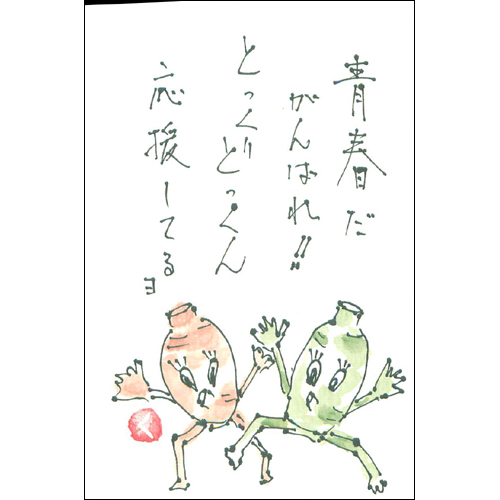 青春だ
がんばれ!!
とっくりとっくん
応援してるヨ